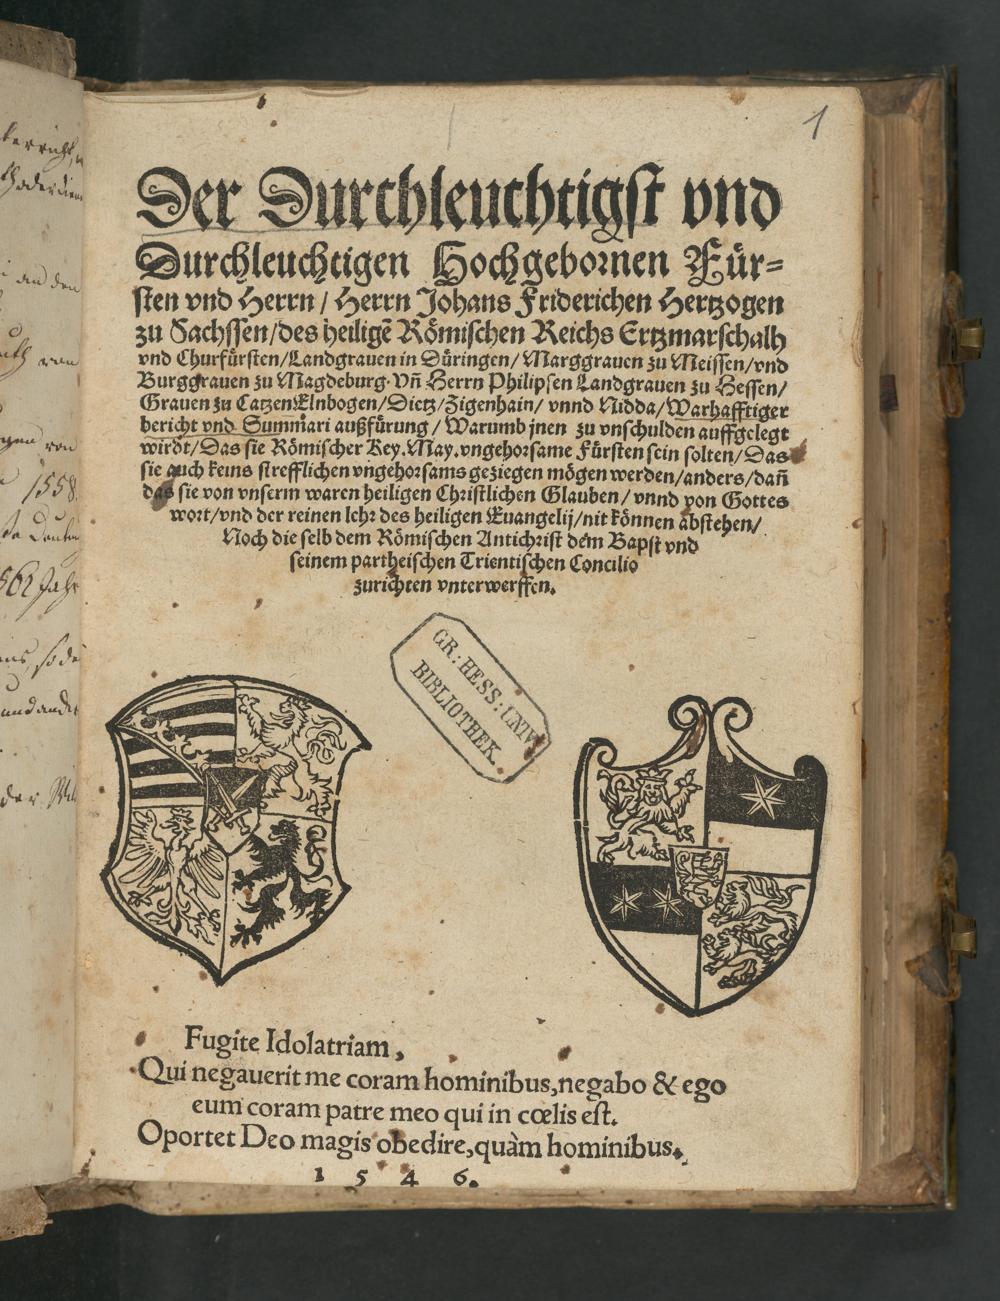 1
Der Durchleuchtigst vnd
Durchleuchtigen Hochgebornen Für-
sten vnd Herrn / Herrn Johans Friderichen Hertzogen
zu Sachssen/des heiligē Römischen Reichs Ertzmarschalh
vnd Churfürsten/Landgrauen in Düringen/ Marggrauen zu Meissen/vnd
Burggrauen zu Magdeburg. Vñ Herrn Philipsen Landgrauen zu Hessen/
Grauen zu CatzenElnbogen/Dietz/Zigenhain/ vnnd Nidda/Warhafftiger
bericht vnd Summari außfürung/ Warumb jnen zu vnschulden auffgelegt
wirdt/Das sie Römischer Key. May. vngehorsame Fürsten sein solten/Das
sie auch keins strefflichen vngehorsams geziegen mögen werden/anders/dañ
das sie von vnserm waren heiligen Christlichen Glauben/ vnnd von Gottes
wort/vnd der reinen lehr des heiligen Euangelij/nit können abstehen/
Noch die selb dem Römischen Antichrist dem Bapst vnd
seinem partheischen Trientischen Concilio
zurichten vnterwerffen.
GR: HESS: UNIV.
BIBLIOTHEK.
Fugite Idolatriam,
Qui negauerit me coram hominibus, negabo & ego
eum coram patre meo qui in cœlis est.
Oportet Deo magis obedire, quàm hominibus.
1 5 4 6.
an den
von
von
1558